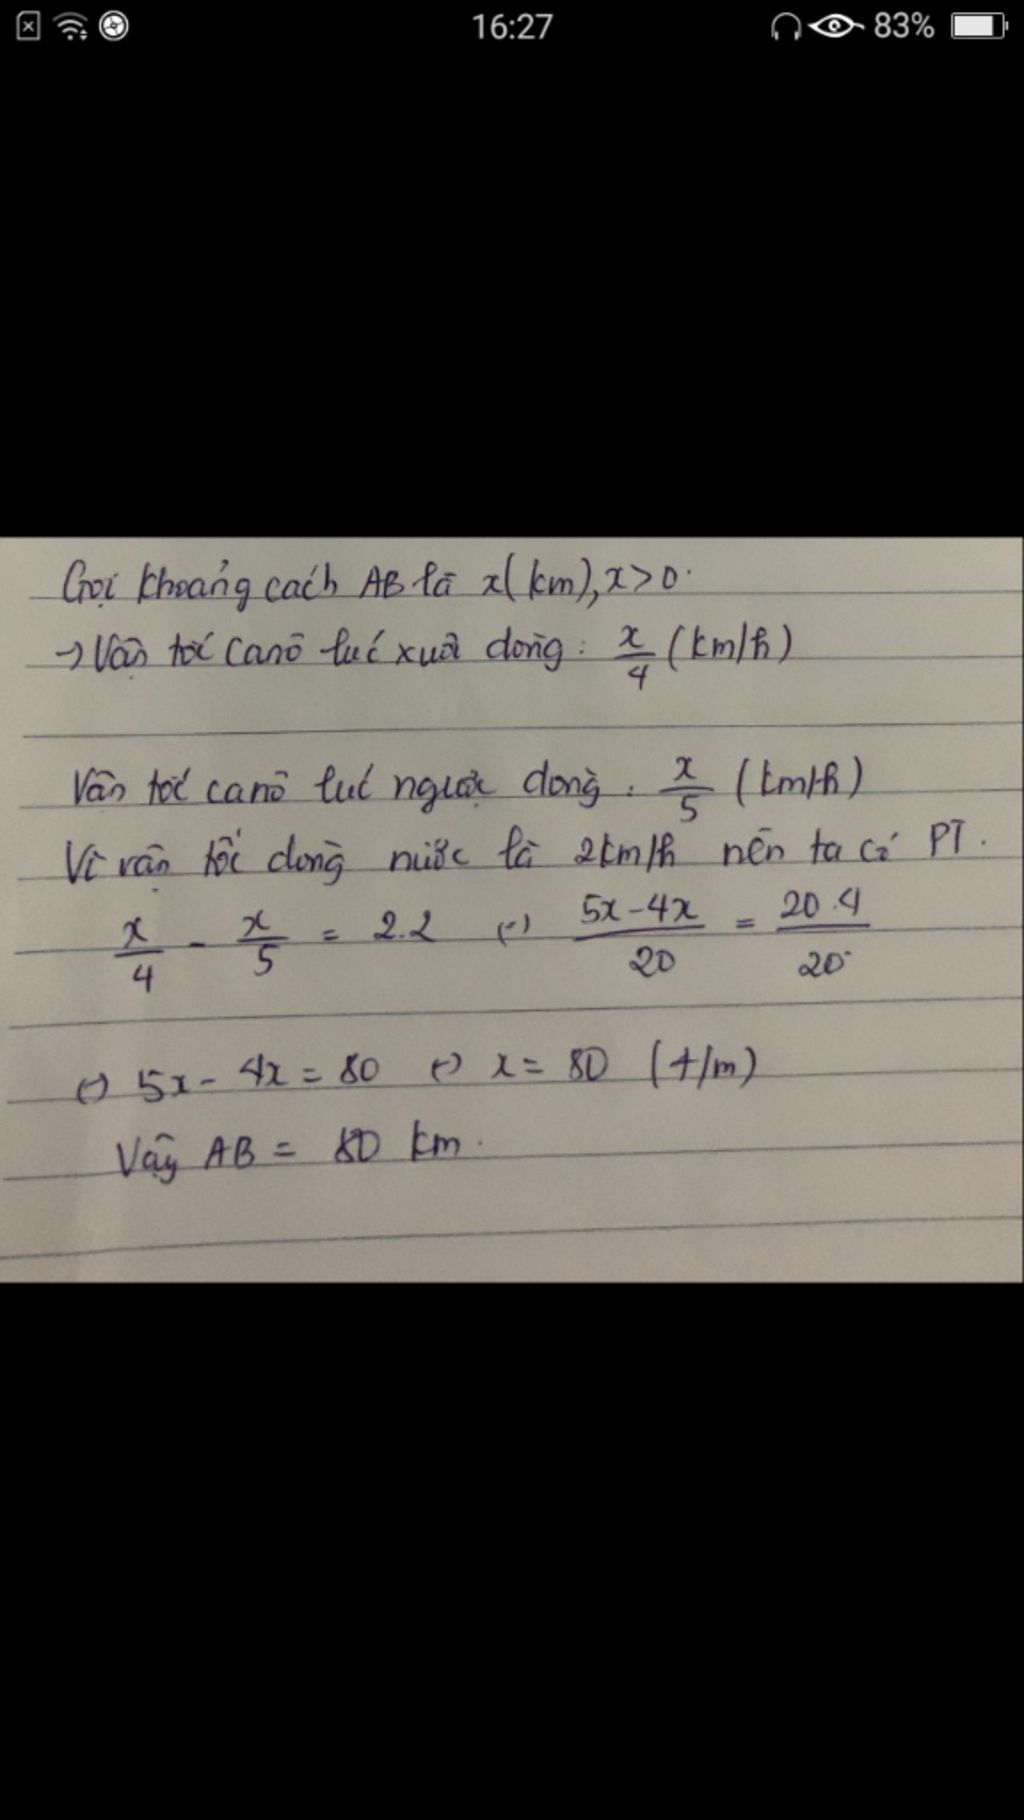 16:27
83%
Gọi khoảng cách AB là x(km), x>0.
→ Vận tốc canô lúc xuôi dòng: x/4 (km/h)
Vận tốc canô lúc ngược dòng: x/5 (km/h)
Vì vận tốc dòng nước là 2km/h nên ta có PT.
x/4 - x/5 = 2.2 (-) 5x-4x/20 = 20.4/20
(-) 5x - 4x = 80 (-) x = 80 (t/m)
Vậy AB = 80 km.